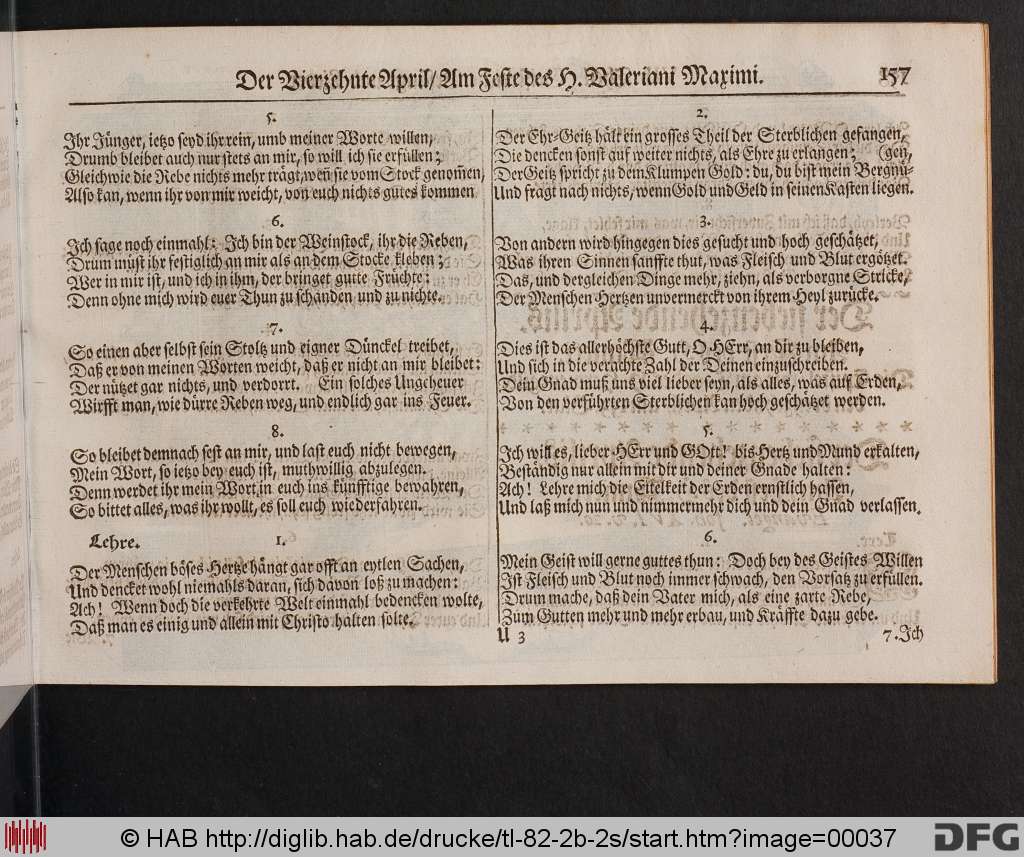 Der Vierzehnte April/ Am Feste des H. Valeriani Maximi. 157
5.
Ihr Jünger, ietzo seyd ihr rein, umb meiner Worte willen,
Drumb bleibet auch nur stets an mir, so will ich sie erfüllen;
Gleich wie die Rebe nichts mehr trägt, weñ sie vom Stock genom̃en,
Also kan, wenn ihr von mir weicht, von euch nichts gutes kommen
6.
Ich sage noch einmahl: Ich bin der Weinstock, ihr die Reben,
Drum müst ihr festiglich an mir als an dem Stocke kleben;
Wer in mir ist, und ich in ihm, der bringet gutte Früchte:
Denn ohne mich wird euer Thun zu schanden und zu nichte.
7.
So einen aber selbst sein Stoltz und eigner Dünckel treibet,
Daß er von meinen Worten weicht, daß er nicht an mir bleibet:
Der nützet gar nichts, und verdorrt. Ein solches Ungeheuer
Wirfft man, wie dürre Reben weg, und endlich gar ins Feuer.
8.
So bleibet demnach fest an mir, und last euch nicht bewegen,
Mein Wort, so ietzo bey euch ist, muthwillig abzulegen.
Denn werdet ihr mein Wort in euch ins künfftige bewahren,
So bittet alles, was ihr wollt, es soll euch wiederfahren.
Lehre. 1.
Der Menschen böses Hertze hängt gar offt an eytlen Sachen,
Und dencket wohl niemahls daran, sich davon loß zu machen:
Ach! Wenn doch die verkehrte Welt einmahl bedencken wolte,
Daß man es einig und allein mit Christo halten solte.
2.
Der Ehr-Geitz hält ein grosses Theil der Sterblichen gefangen,
Die dencken sonst auf weiter nichts, als Ehre zu erlangen; (gen,
Der Geitz spricht zu dem Klumpen Gold: du, du bist mein Vergnü-
Und fragt nach nichts, wenn Gold und Geld in seinen Kasten liegen.
3.
Von andern wird hingegen dies gesucht und hoch geschätzet,
Was ihren Sinnen sanffte thut, was Fleisch und Blut ergötzet.
Das, und dergleichen Dinge mehr, ziehn, als verborgne Stricke,
Der Menschen Hertzen unvermerckt von ihrem Heyl zurücke.
4.
Dies ist das allerhöchste Gutt, O HErr, an dir zu bleiben,
Und sich in die verachte Zahl der Deinen einzuschreiben.
Dein Gnad muß uns viel lieber seyn, als alles, was auf Erden,
Von den verführten Sterblichen kan hoch geschätzet werden.
5.
Ich will es, lieber HErr und GOtt! bis Hertz und Mund erkalten,
Beständig nur allein mit dir und deiner Gnade halten:
Ach! Lehre mich die Eitelkeit der Erden ernstlich hassen,
Und laß mich nun und nimmermehr dich und dein Gnad verlassen.
6.
Mein Geist will gerne guttes thun: Doch bey des Geistes Willen
Ist Fleisch und Blut noch immer schwach, den Vorsatz zu erfüllen.
Drum mache, daß dein Vater mich, als eine zarte Rebe,
Zum Gutten mehr und mehr erbau, und Kräffte dazu gebe.
U 3 7. Ich
© HAB http://diglib.hab.de/drucke/tl-82-2b-2s/start.htm?image=00037
DFG